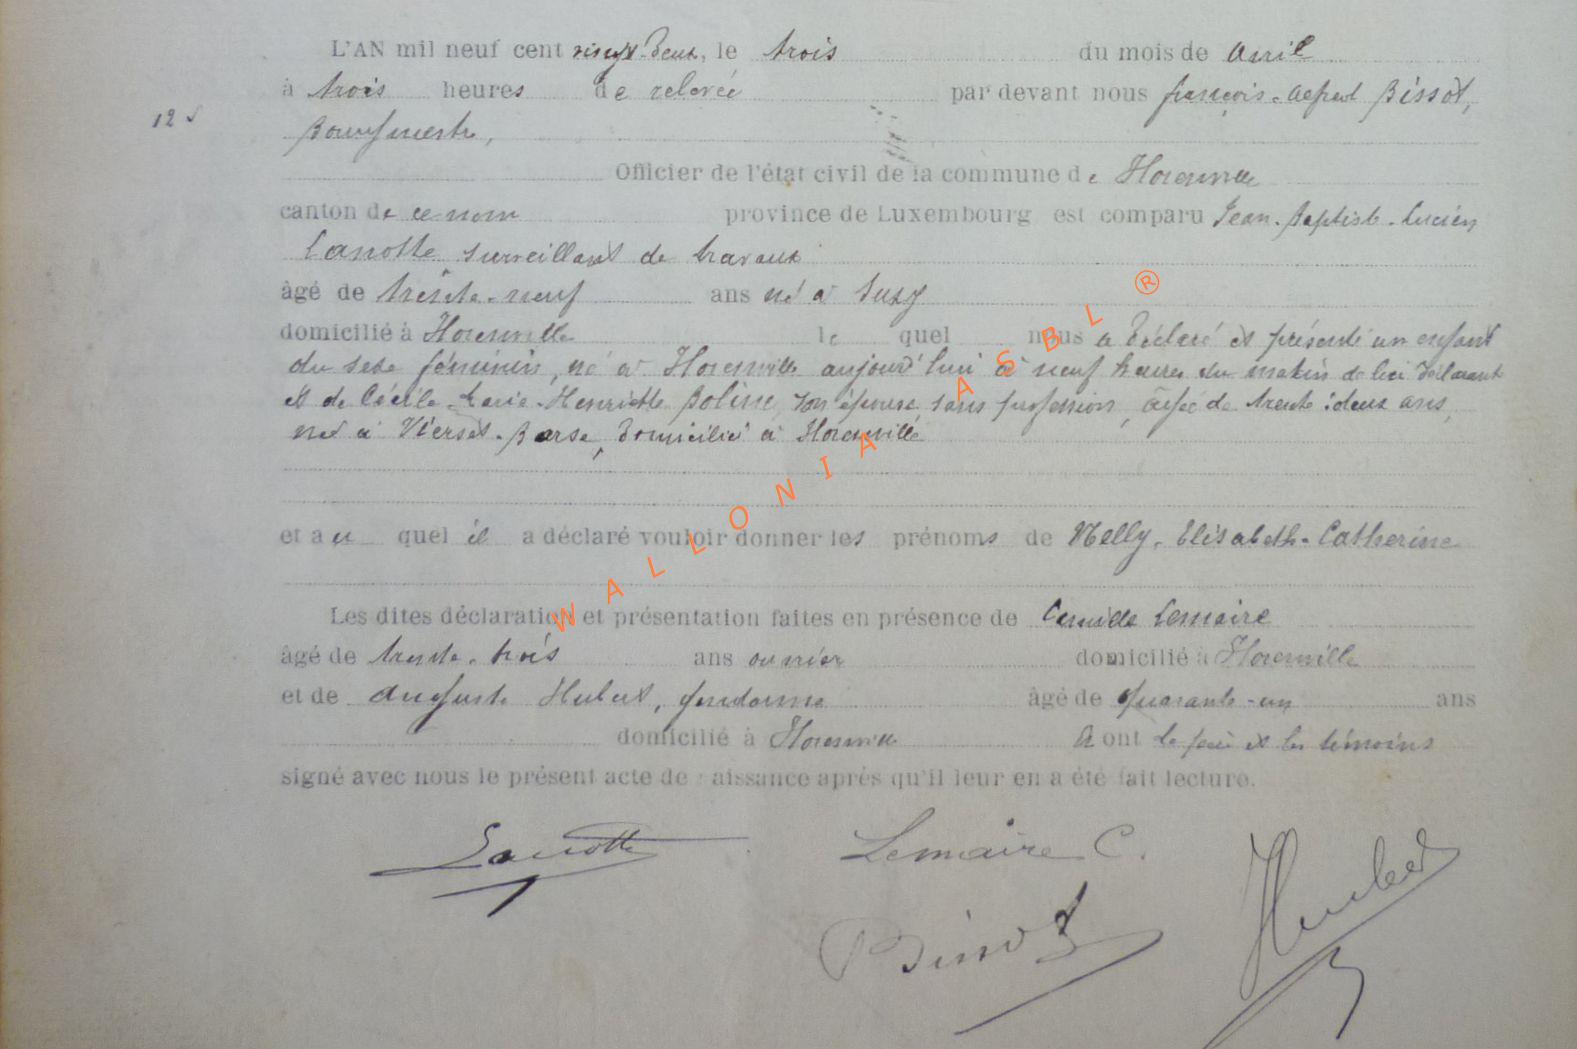 L'AN mil neuf cent vingt-deux, le trois du mois de avril
à trois heures de relevée par devant nous françois-Alfred Bissot,
12
Bourgmestre,
Officier de l'état civil de la commune de Florenville
canton de ce nom province de Luxembourg est comparu Jean-Baptiste-Lucien
Lanotte surveillant de travaux
âgé de trente-neuf ans né à Suxy
domicilié à Florenville le quel nous a déclaré et présenté un enfant
du sexe féminin, né à Florenville aujourd'hui à neuf heures du matin de lui déclarant
et de Cécile-Marie-Henriette Boline, son épouse, sans profession, âgée de trente-deux ans,
née à Vierset-Barse, domiciliée à Florenville
et au quel il a déclaré vouloir donner les prénoms de Nelly-Elisabeth-Catherine
Les dites déclaration et présentation faites en présence de Camille Lemaire
âgé de trente-trois ans ouvrier domicilié à Florenville
et de Auguste Hubert, gendarme âgé de quarante-un ans
domicilié à Florenville Et ont le père et les témoins
signé avec nous le présent acte de naissance après qu'il leur en a été fait lecture.
Lanotte Lemaire C. Hubert
Bissot
WALLONIA ASBL ®